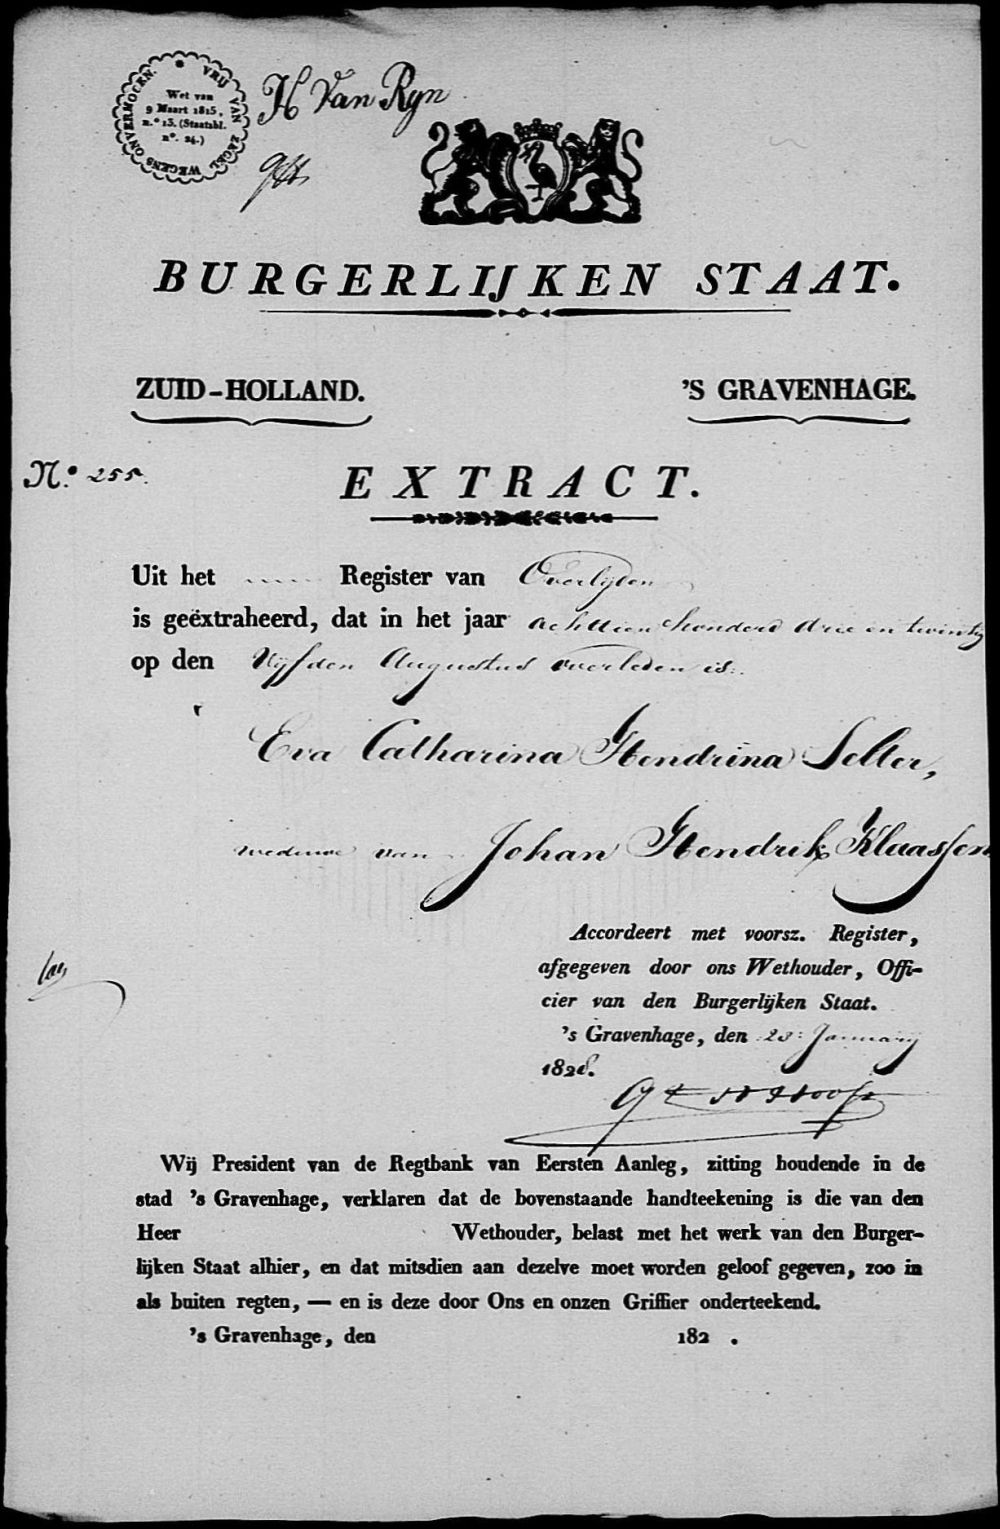 VRIJ VAN ZEGEL WEGENS ONVERMOGEN.
Wet van
9 Maart 1815,
n.º 15. (Staatsbl.
nº. 24.)
H Van Ryn
BURGERLIJKEN STAAT.
ZUID-HOLLAND.
'S GRAVENHAGE.
Nº. 255.
EXTRACT.
Uit het Register van Overlyden
is geëxtraheerd, dat in het jaar achttien honderd drie en twintig
op den Vijfden Augustus overleden is:
Eva Catharina Hendrina Selter,
weduwe van Johan Hendrik Klaassen
Accordeert met voorsz. Register,
afgegeven door ons Wethouder, Offi-
cier van den Burgerlijken Staat.
's Gravenhage, den 28: Januarij
1828.
Wij President van de Regtbank van Eersten Aanleg, zitting houdende in de
stad 's Gravenhage, verklaren dat de bovenstaande handteekening is die van den
Heer Wethouder, belast met het werk van den Burger-
lijken Staat alhier, en dat mitsdien aan dezelve moet worden geloof gegeven, zoo in
als buiten regten, — en is deze door Ons en onzen Griffier onderteekend.
's Gravenhage, den 182 .